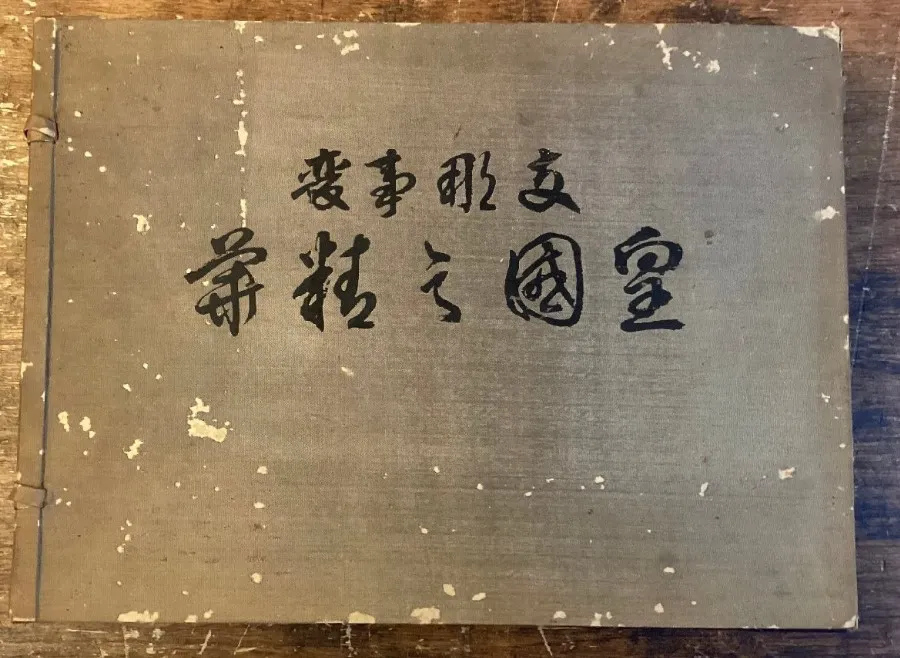 支那事變
皇國之精華